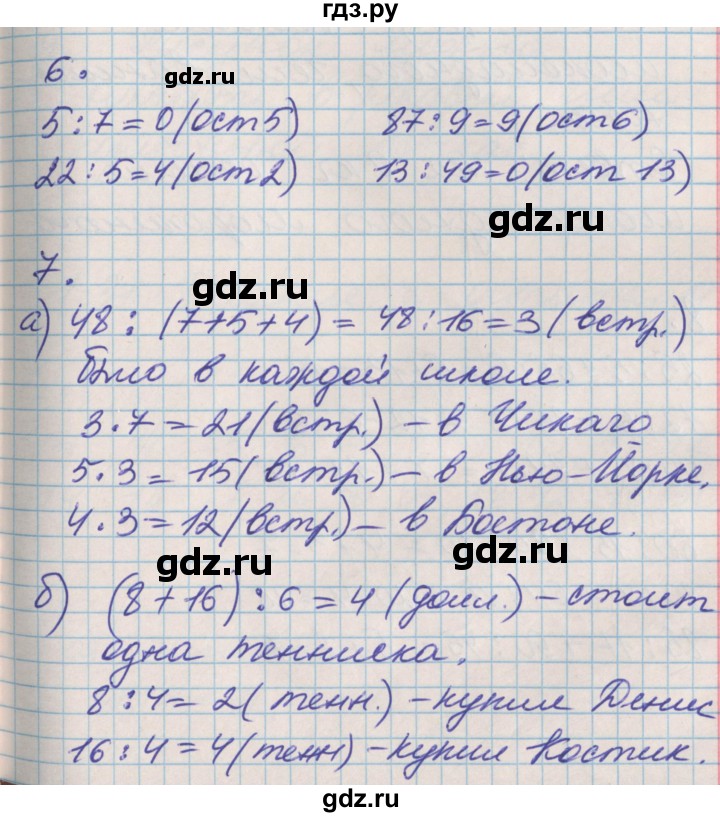 гдз.ру
6.
gdz.ru
5:7=0(ост5) 87:9=9(ост6)
22:5=4(ост2) 13:49=0(ост 13)
gdz.ru
7.
gdz.ru
а) 48:(7+5+4)=48:16=3(встр.)
было в каждой школе.
3·7=21(встр.)-в Чикаго
5·3=15(встр.)-в Нью-Йорке.
4·3=12(встр.)-в Бостоне.
gdz.ru
gdz.ru
б) (8+16):6=4(долл.)-стоит
одна тенниска.
8:4=2(тенн.)-купил Денис
16:4=4(тенн)-купил Костик.
gdz.ru
gdz.ru
gdz.ru